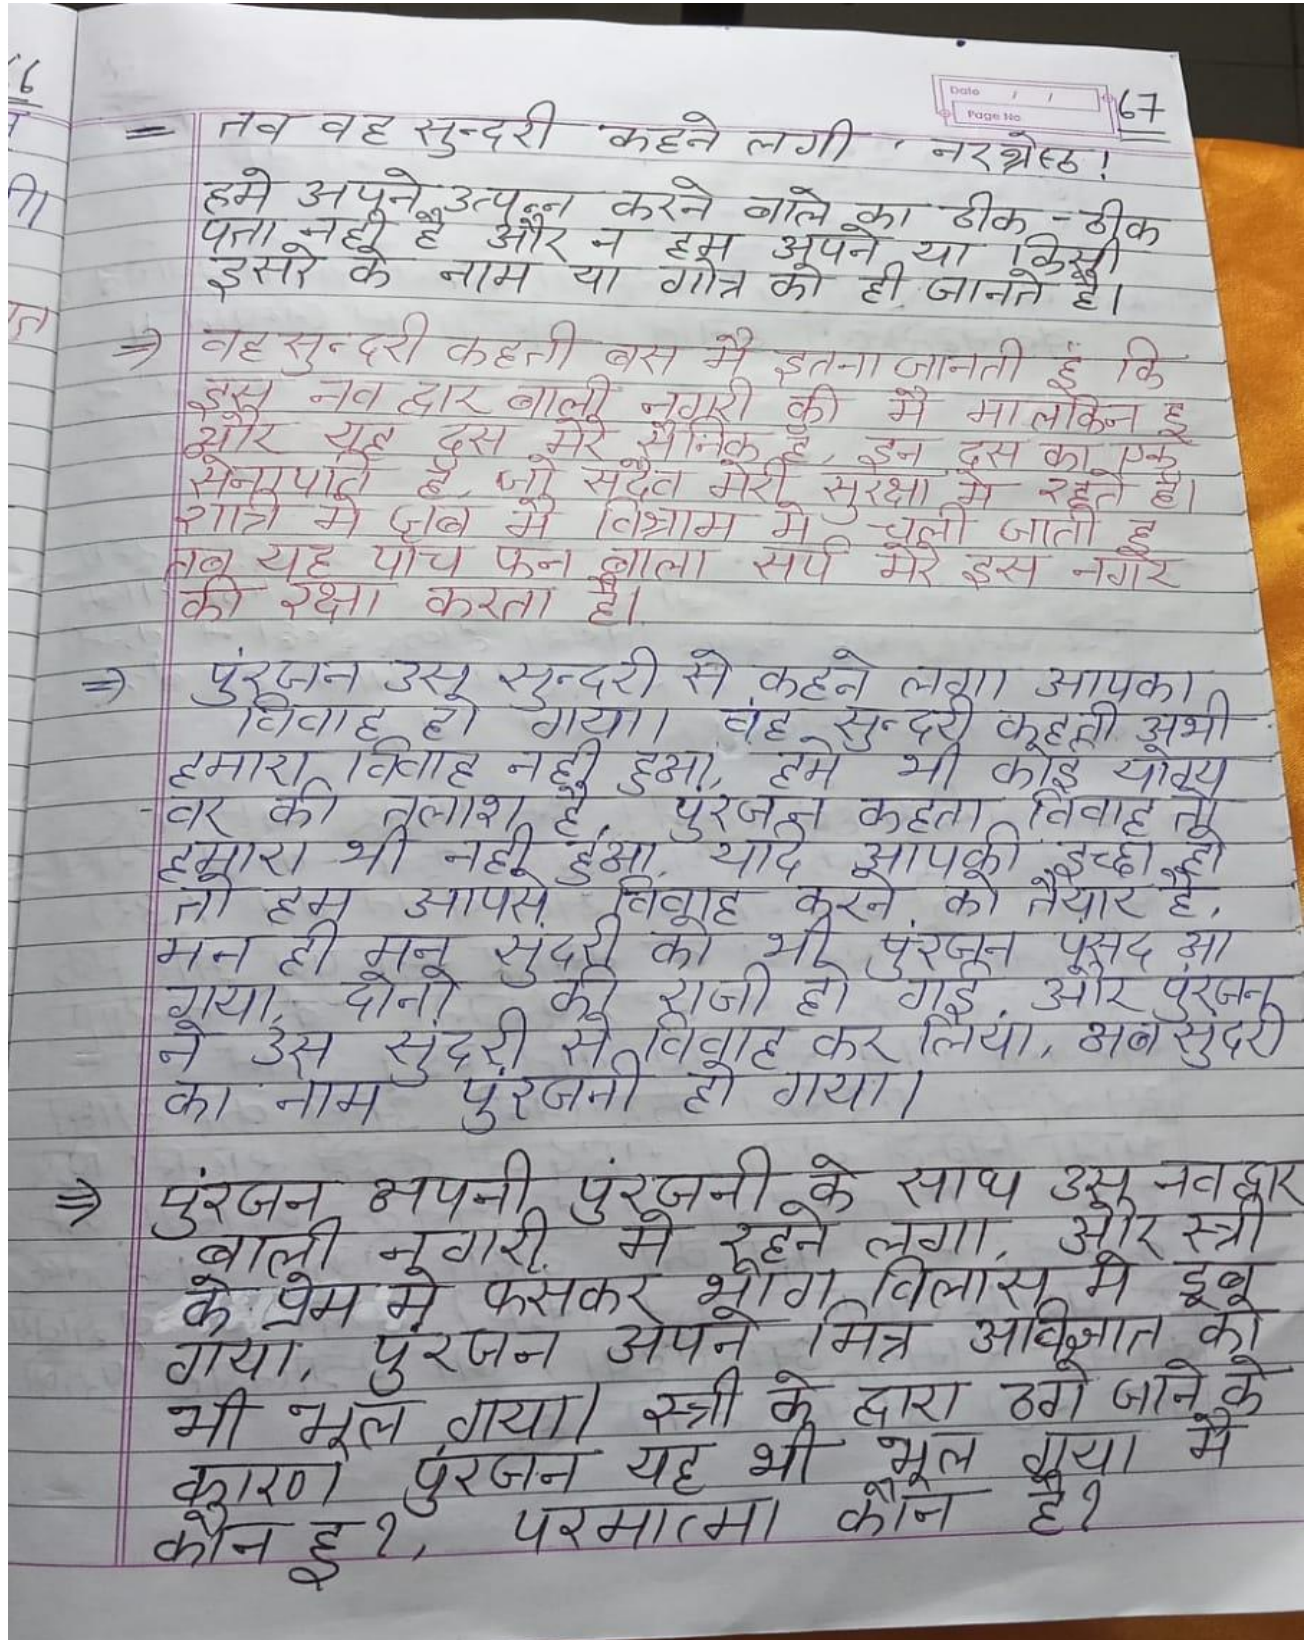 16
Date / /
Page No
67
= तव वह सुन्दरी कहने लगी, नरश्रेष्ठ!
हमे अपने उत्पन्न करने बाले का ठीक - ठीक
पता नही है और न हम अपने या किसी
दुसरे के नाम या गोत्र को ही जानते है।
⇒ वह सुन्दरी कहती बस मै इतना जानती हूं कि
इस नव द्वार बाली नगरी की मै मालकिन हू
और यह दस मेरे सैनिक है, इन दस का एक
सेनापति है, जो सदैव मेरी सुरक्षा मे रहते है।
रात्रि मे जब मै विश्राम मे चली जाती हू
तब यह पांच फन बाला सर्प मेरे इस नगर
की रक्षा करता है।
⇒ पुंरजन उस सुन्दरी से कहने लगा आपका
विवाह हो गया। वह सुन्दरी कहती अभी
हमारा विवाह नही हुआ, हमे भी कोई योग्य
वर की तलाश है, पुंरजन कहता विवाह तो
हमारा भी नही हुआ, यदि आपकी इच्छा हो
तो हम आपसे विवाह करने को तैयार है,
मन ही मन सुंदरी को भी पुंरजन पसंद आ
गया, दोनो की राजी हो गई, और पुंरजन
ने उस सुंदरी से विवाह कर लिया, अब सुंदरी
का नाम पुंरजनी हो गया।
⇒ पुंरजन अपनी पुंरजनी के साथ उस नवद्वार
बाली नगरी मे रहने लगा, और स्त्री
के प्रेम मे फसकर भोग विलास मे डूब
गया, पुंरजन अपने मित्र अविज्ञात को
भी भूल गया। स्त्री के द्वारा ठगे जाने के
कारण पुंरजन यह भी भूल गया मै
कौन हू?, परमात्मा कौन है?